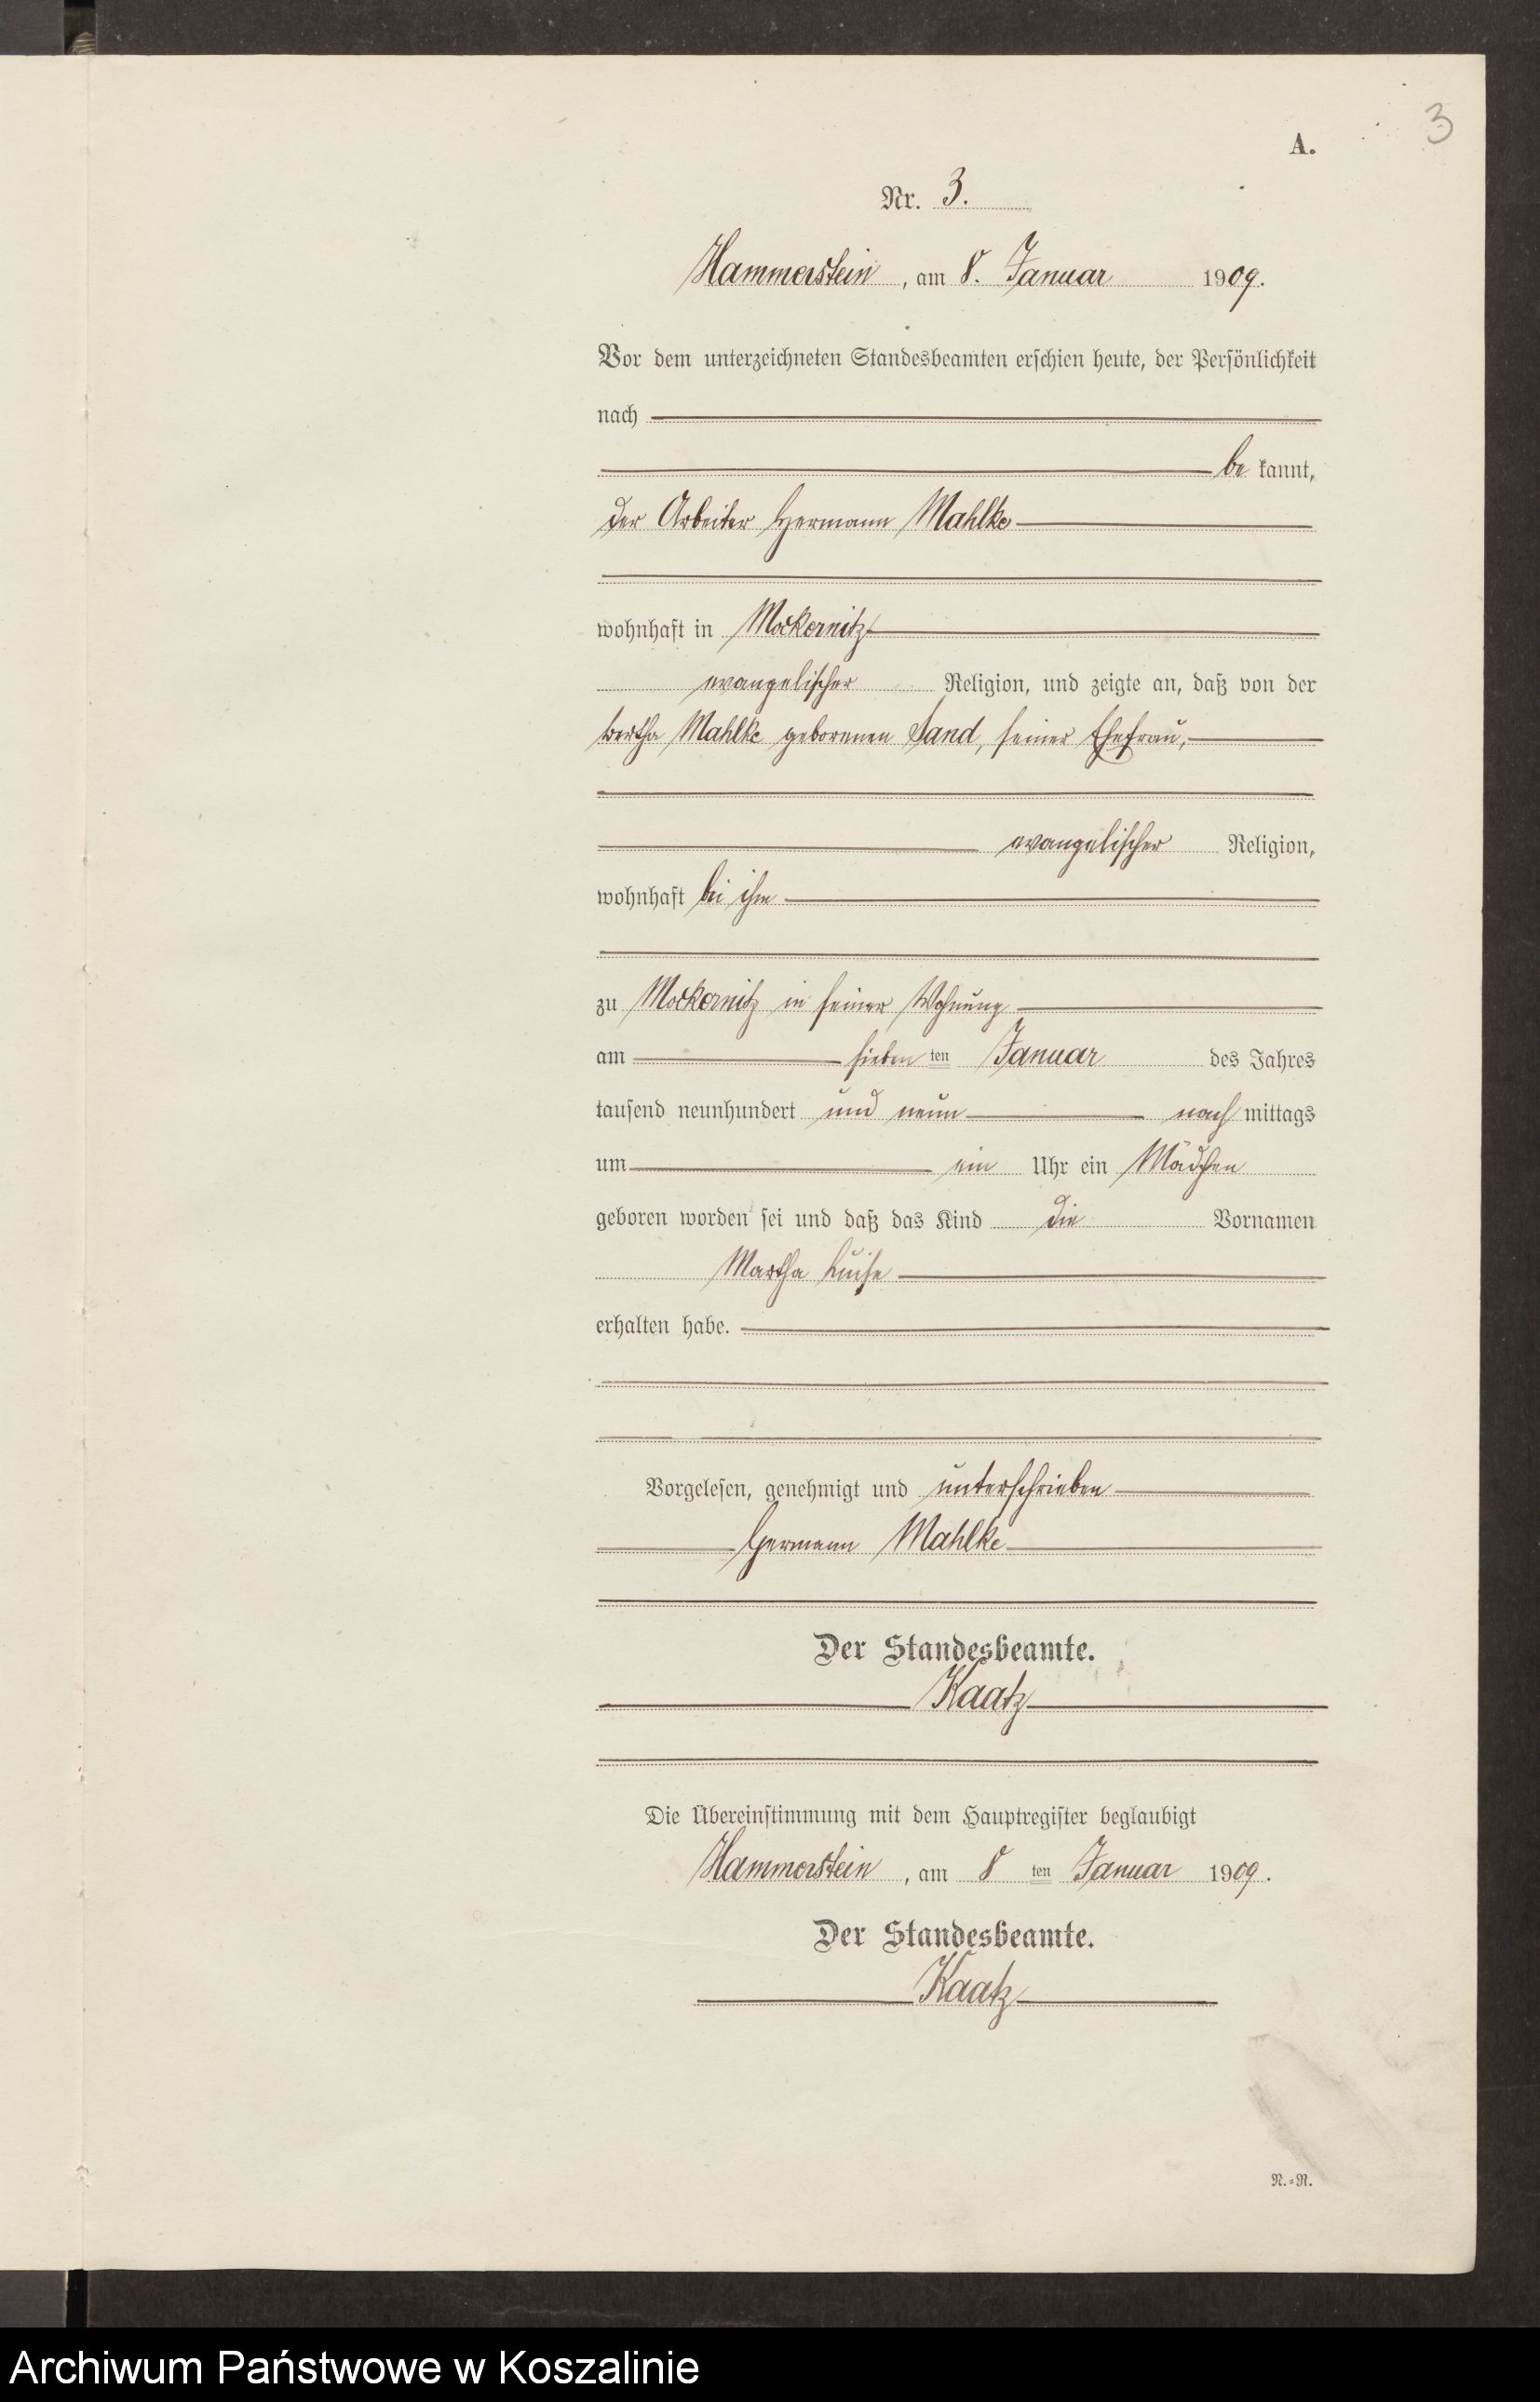 3
A.
Nr. 3.
Hammerstein, am 8. Januar 1909.
Vor dem unterzeichneten Standesbeamten erschien heute, der Persönlichkeit
nach
be kannt,
der Arbeiter Hermann Mahlke
wohnhaft in Mockernitz
evangelischer Religion, und zeigte an, daß von der
Bertha Mahlke geborenen Sand, seiner Ehefrau,
evangelischer Religion,
wohnhaft bei ihm
zu Mockernitz in seiner Wohnung
am sieben ten Januar des Jahres
tausend neunhundert und neun nach mittags
um ein Uhr ein Mädchen
geboren worden sei und daß das Kind die Vornamen
Martha Luise
erhalten habe.
Vorgelesen, genehmigt und unterschrieben
Hermann Mahlke
Der Standesbeamte.
Kaatz
Die Übereinstimmung mit dem Hauptregister beglaubigt
Hammerstein, am 8 ten Januar 1909.
Der Standesbeamte.
Kaatz
N.=R.
Archiwum Państwowe w Koszalinie